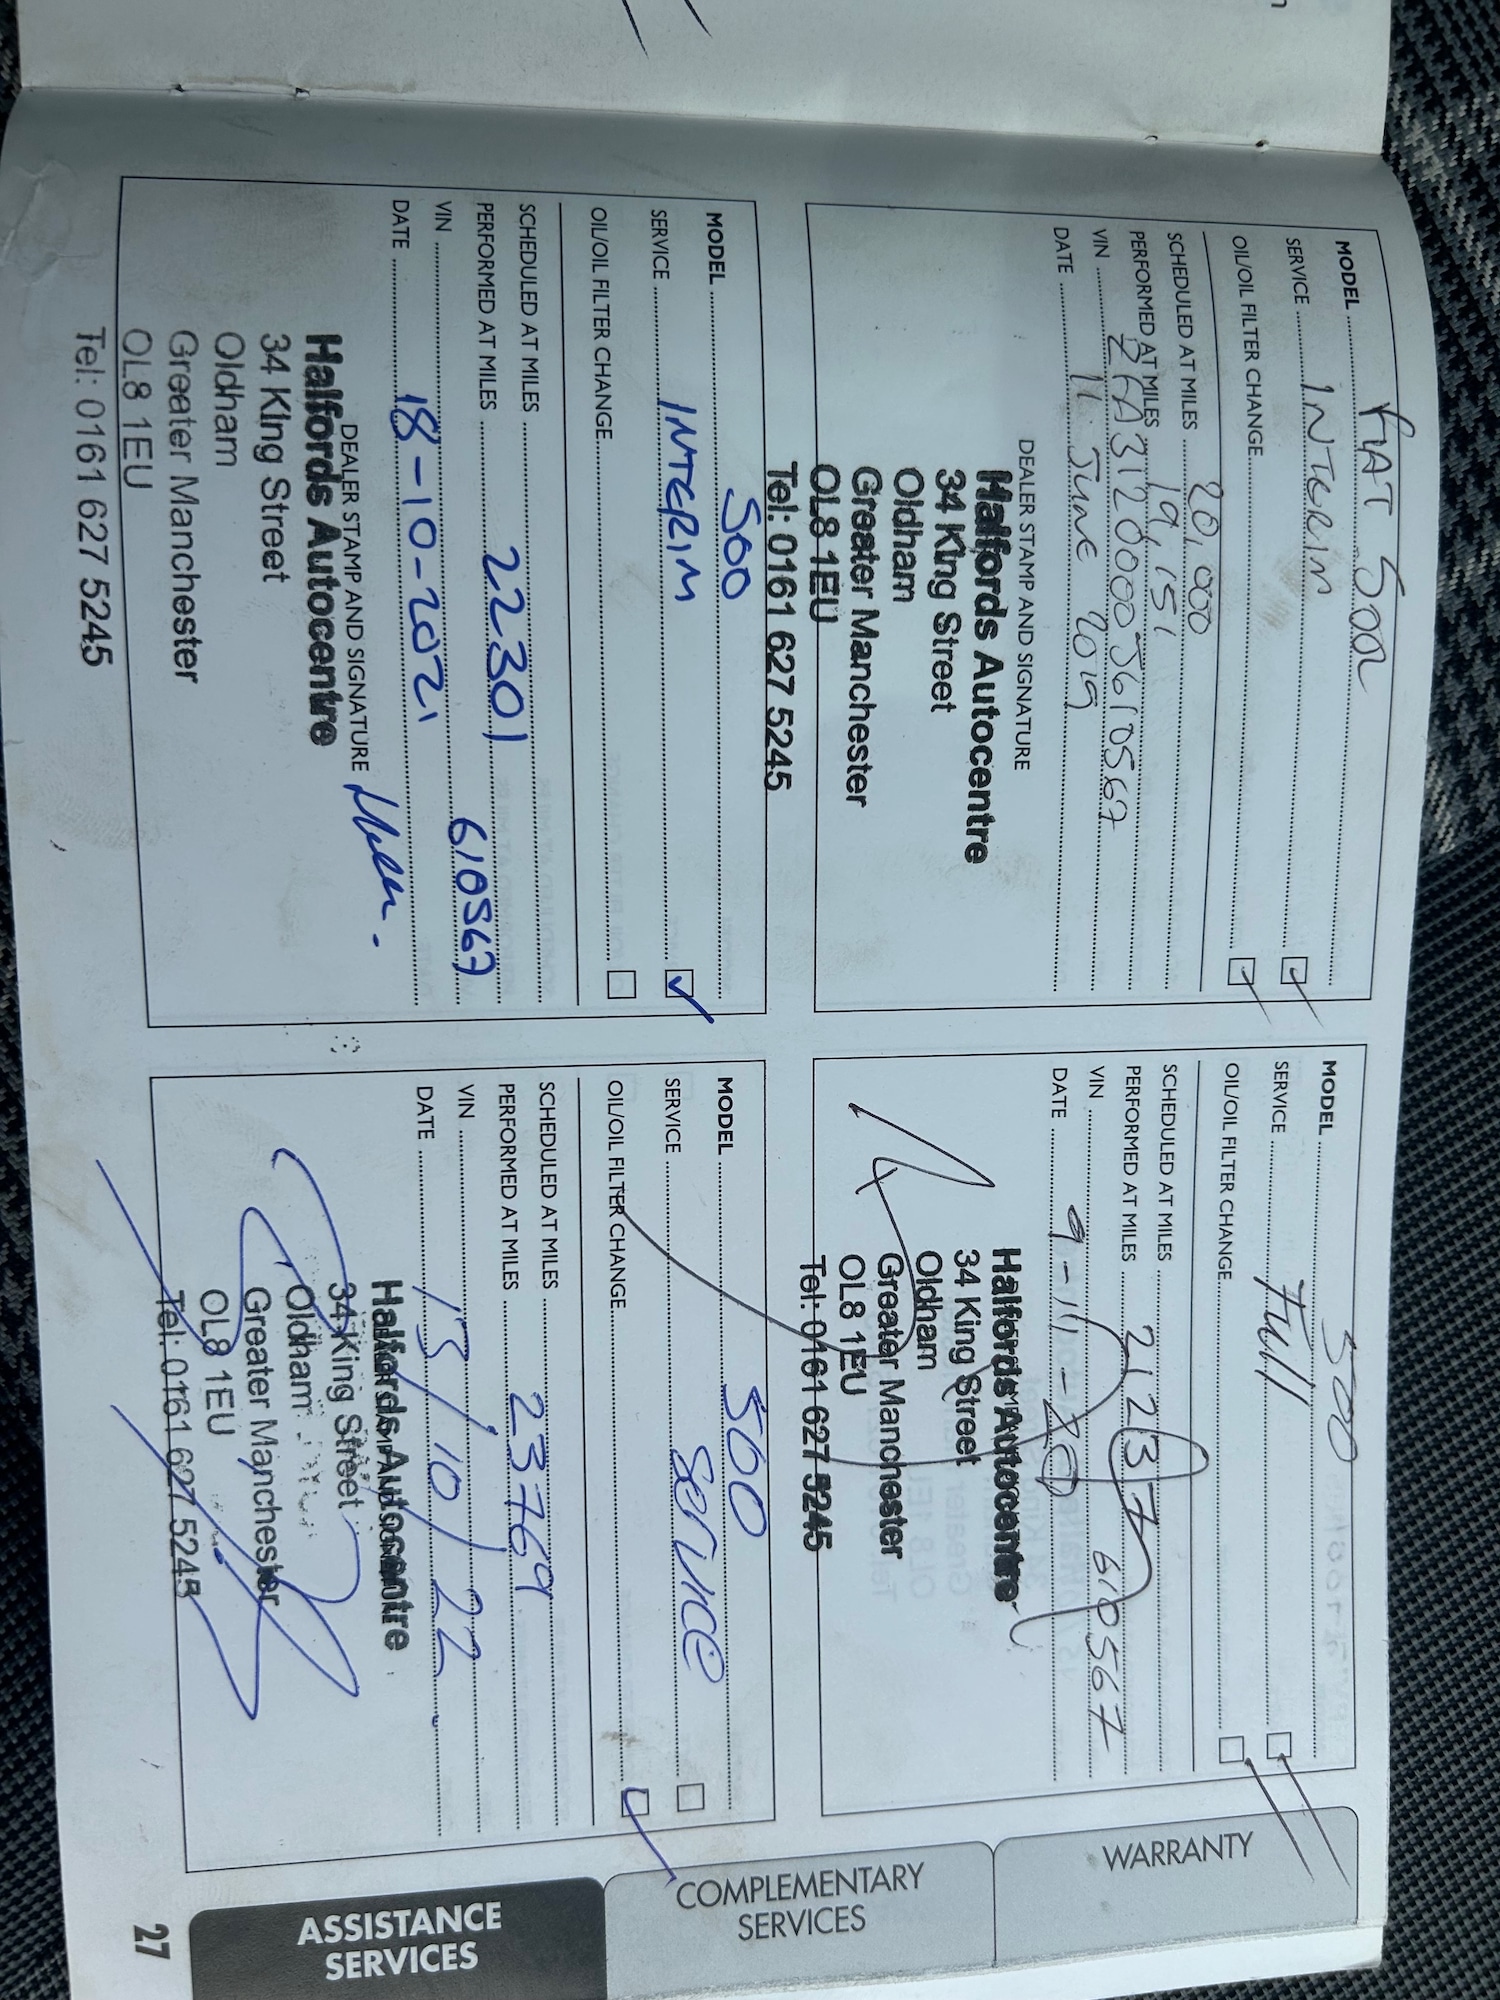 MODEL FIAT 500
SERVICE INTERIM
OIL/OIL FILTER CHANGE
SCHEDULED AT MILES 20,000
PERFORMED AT MILES 19,151
VIN ZFA31200000J610567
DATE 11 June 2019
DEALER STAMP AND SIGNATURE
Halfords Autocentre
34 King Street
Oldham
Greater Manchester
OL8 1EU
Tel: 0161 627 5245
MODEL 500
SERVICE Full
OIL/OIL FILTER CHANGE
SCHEDULED AT MILES
PERFORMED AT MILES 21237
VIN 610567
DATE 9-11-20
Halfords Autocentre
34 King Street
Oldham
Greater Manchester
OL8 1EU
Tel: 0161 627 5245
MODEL 500
SERVICE INTERIM
OIL/OIL FILTER CHANGE
SCHEDULED AT MILES
PERFORMED AT MILES 22301
VIN 610567
DATE 18-10-2021
DEALER STAMP AND SIGNATURE
Halfords Autocentre
34 King Street
Oldham
Greater Manchester
OL8 1EU
Tel: 0161 627 5245
MODEL 500
SERVICE Service
OIL/OIL FILTER CHANGE
SCHEDULED AT MILES
PERFORMED AT MILES 23769
VIN
DATE 13/10/22
Halfords Autocentre
34 King Street
Oldham
Greater Manchester
OL8 1EU
Tel: 0161 627 5245
WARRANTY
COMPLEMENTARY
SERVICES
ASSISTANCE
SERVICES
27